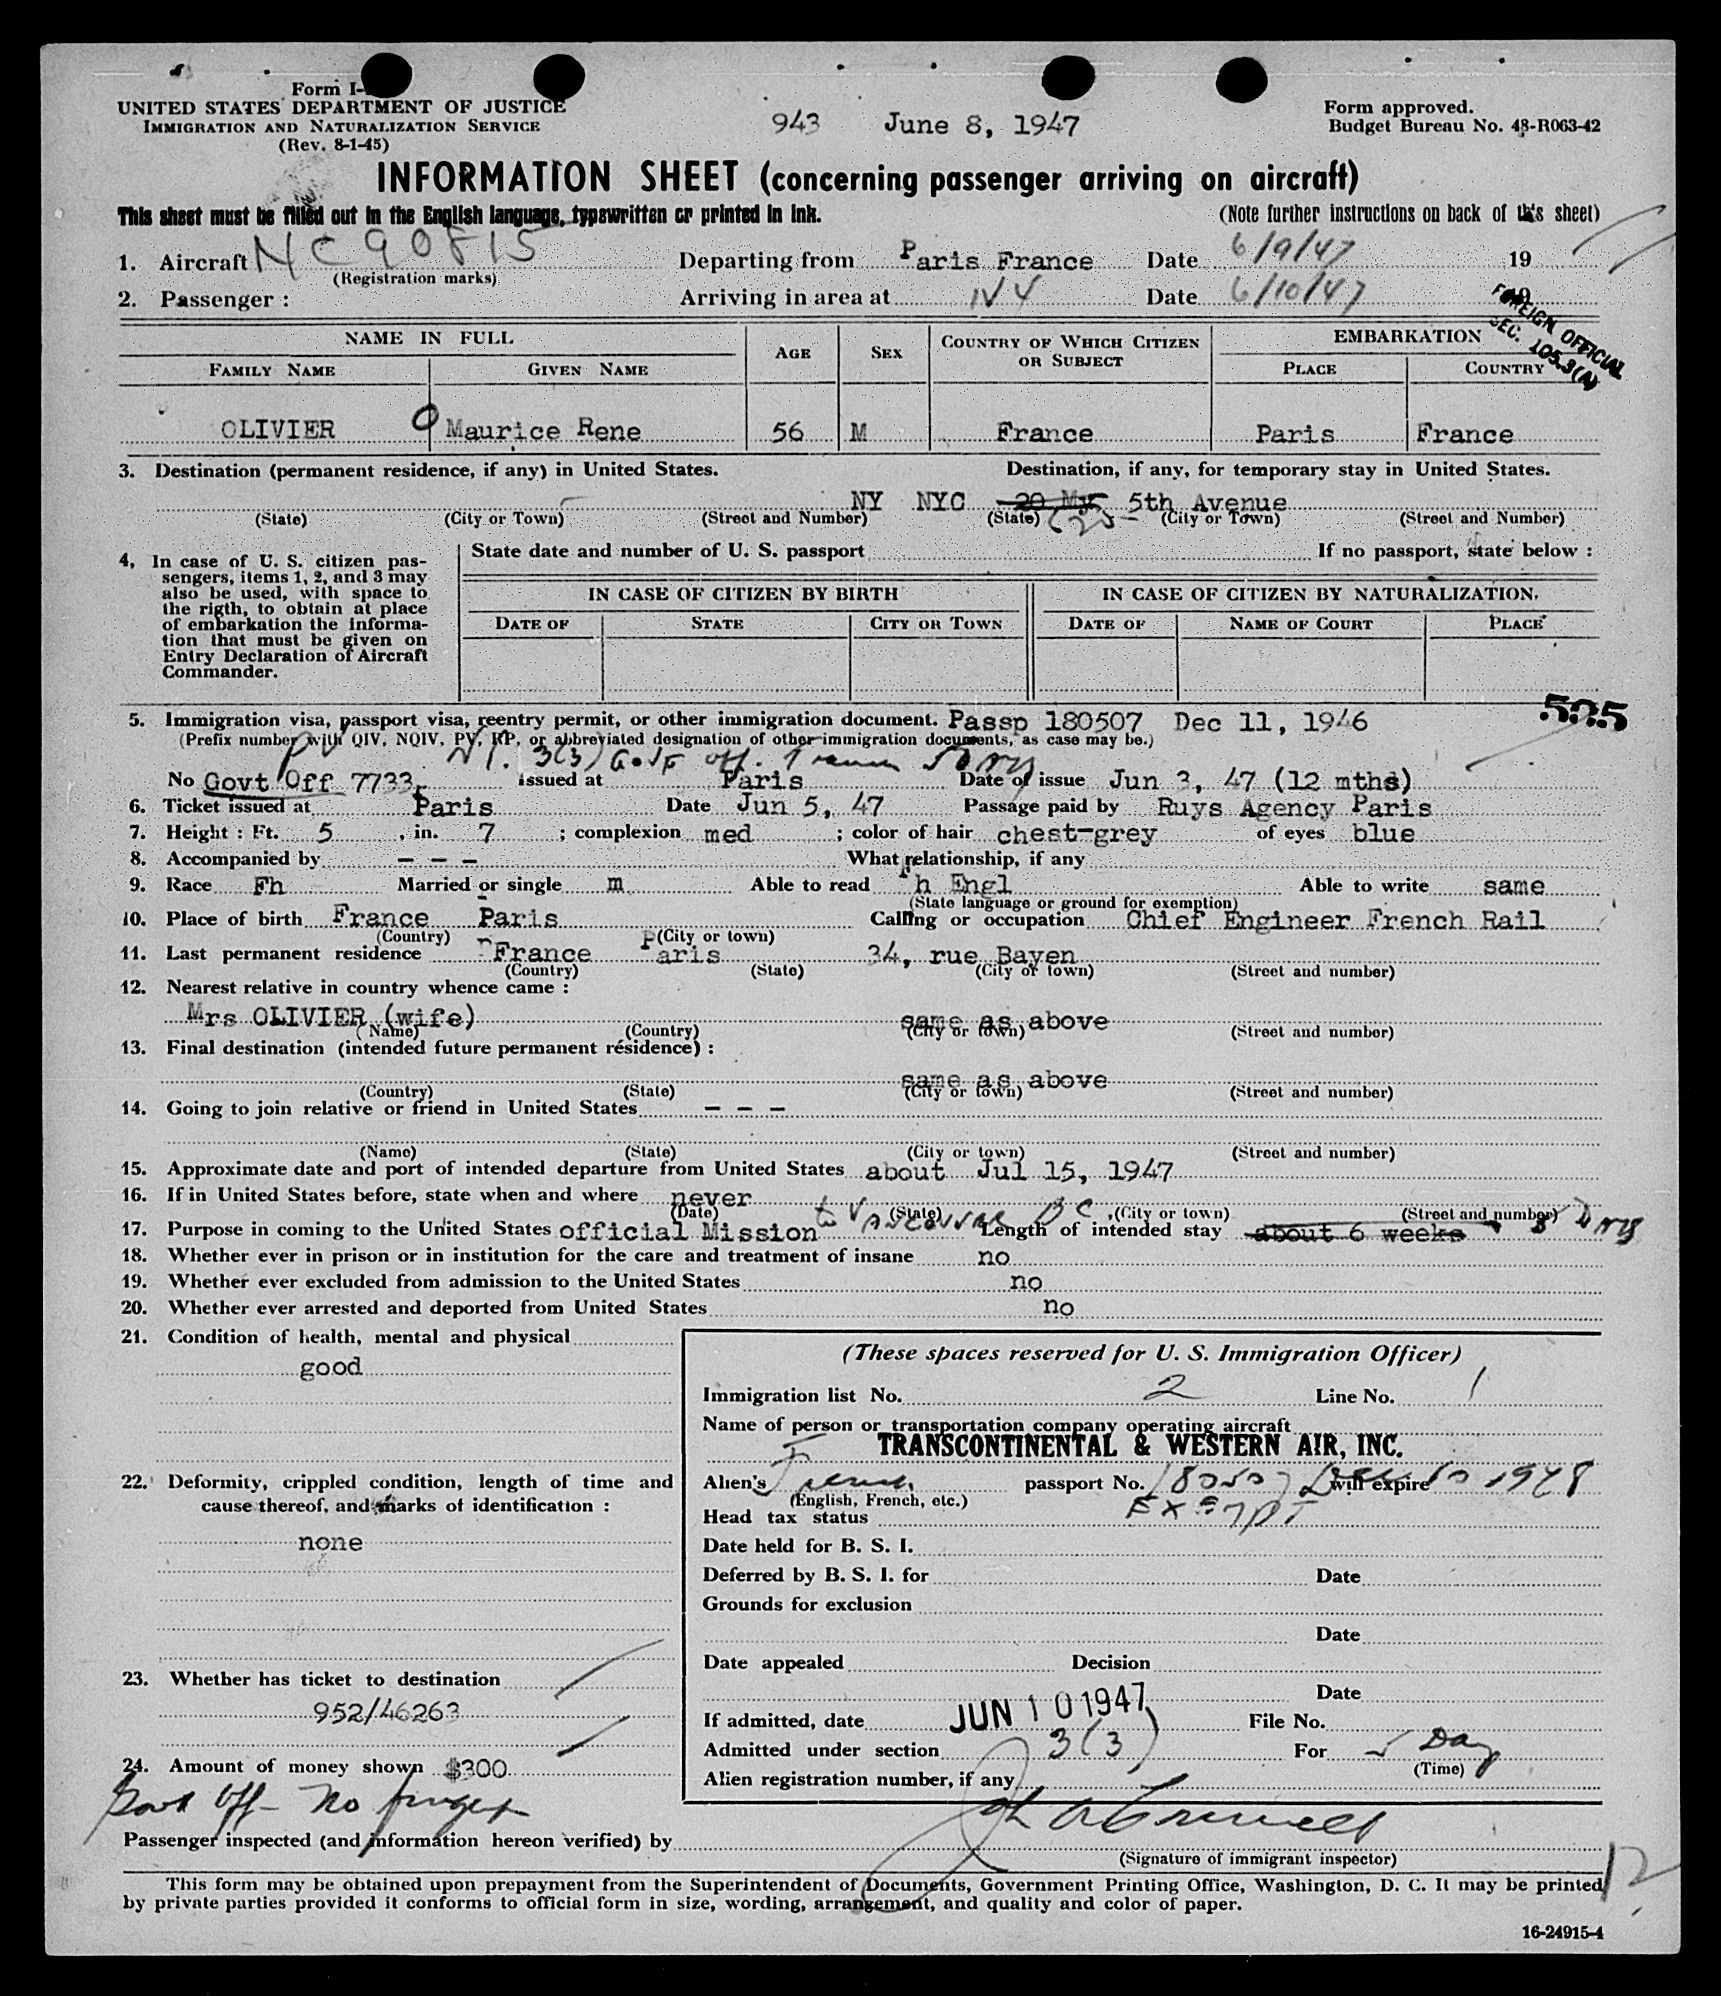 Form I-
UNITED STATES DEPARTMENT OF JUSTICE
IMMIGRATION AND NATURALIZATION SERVICE
(Rev. 8-1-45)
943 June 8, 1947
Form approved.
Budget Bureau No. 43-R063-42
INFORMATION SHEET (concerning passenger arriving on aircraft)
This sheet must be filled out in the English language, typewritten or printed in ink.
(Note further instructions on back of this sheet)
1. Aircraft NC90815 Departing from Paris France Date 6/9/47 19
(Registration marks)
2. Passenger : Arriving in area at NY Date 6/10/47 19
FOREIGN OFFICIAL
SEC. 105.3(A)
NAME IN FULL AGE SEX COUNTRY OF WHICH CITIZEN OR SUBJECT EMBARKATION
FAMILY NAME GIVEN NAME PLACE COUNTRY
OLIVIER Maurice Rene 56 M France Paris France
3. Destination (permanent residence, if any) in United States. Destination, if any, for temporary stay in United States.
NY NYC 5th Avenue
(State) (City or Town) (Street and Number) (State) (City or Town) (Street and Number)
4, In case of U. S. citizen passengers, items 1, 2, and 3 may also be used, with space to the rigth, to obtain at place of embarkation the information that must be given on Entry Declaration of Aircraft Commander.
State date and number of U. S. passport If no passport, state below :
IN CASE OF CITIZEN BY BIRTH IN CASE OF CITIZEN BY NATURALIZATION.
DATE OF STATE CITY OR TOWN DATE OF NAME OF COURT PLACE
525
5. Immigration visa, passport visa, reentry permit, or other immigration document. Passp 180507 Dec 11, 1946
(Prefix number with QIV, NQIV, PV, RP, or abbreviated designation of other immigration documents, as case may be.)
PV 3(3) Govt off.
No Govt Off 7733 issued at Paris Date of issue Jun 3, 47 (12 mths)
6. Ticket issued at Paris Date Jun 5, 47 Passage paid by Ruys Agency Paris
7. Height : Ft. 5 , in. 7 ; complexion med ; color of hair chest-grey of eyes blue
8. Accompanied by - - - What relationship, if any
9. Race Fh Married or single m Able to read Fh Engl Able to write same
(State language or ground for exemption)
10. Place of birth France Paris Calling or occupation Chief Engineer French Rail
(Country) (City or town)
11. Last permanent residence France Paris 34, rue Bayen
(Country) (State) (City or town) (Street and number)
12. Nearest relative in country whence came :
Mrs OLIVIER (wife) same as above
(Name) (Country) (City or town) (Street and number)
13. Final destination (intended future permanent résidence) :
same as above
(Country) (State) (City or town) (Street and number)
14. Going to join relative or friend in United States - - -
(Name) (State) (City or town) (Street and number)
15. Approximate date and port of intended departure from United States about Jul 15, 1947
16. If in United States before, state when and where never
(Date) (State) (City or town) (Street and number)
17. Purpose in coming to the United States official Mission to Vancouver BC Length of intended stay about 6 weeks 5 Days
18. Whether ever in prison or in institution for the care and treatment of insane no
19. Whether ever excluded from admission to the United States no
20. Whether ever arrested and deported from United States no
21. Condition of health, mental and physical
good
22. Deformity, crippled condition, length of time and cause thereof, and marks of identification :
none
23. Whether has ticket to destination
952/46263
24. Amount of money shown $300
Govt Off - No finger
(These spaces reserved for U. S. Immigration Officer)
Immigration list No. 2 Line No. 1
Name of person or transportation company operating aircraft
TRANSCONTINENTAL & WESTERN AIR, INC.
Alien's French passport No. 180507 will expire Dec 10 1948
(English, French, etc.)
Head tax status EXEMPT
Date held for B. S. I.
Deferred by B. S. I. for Date
Grounds for exclusion
Date
Date appealed Decision
Date
If admitted, date JUN 10 1947 File No.
Admitted under section 3(3) For 5 Day
(Time)
Alien registration number, if any
Passenger inspected (and information hereon verified) by
(Signature of immigrant inspector)
12
This form may be obtained upon prepayment from the Superintendent of Documents, Government Printing Office, Washington, D. C. It may be printed
by private parties provided it conforms to official form in size, wording, arrangement, and quality and color of paper.
16-24915-4